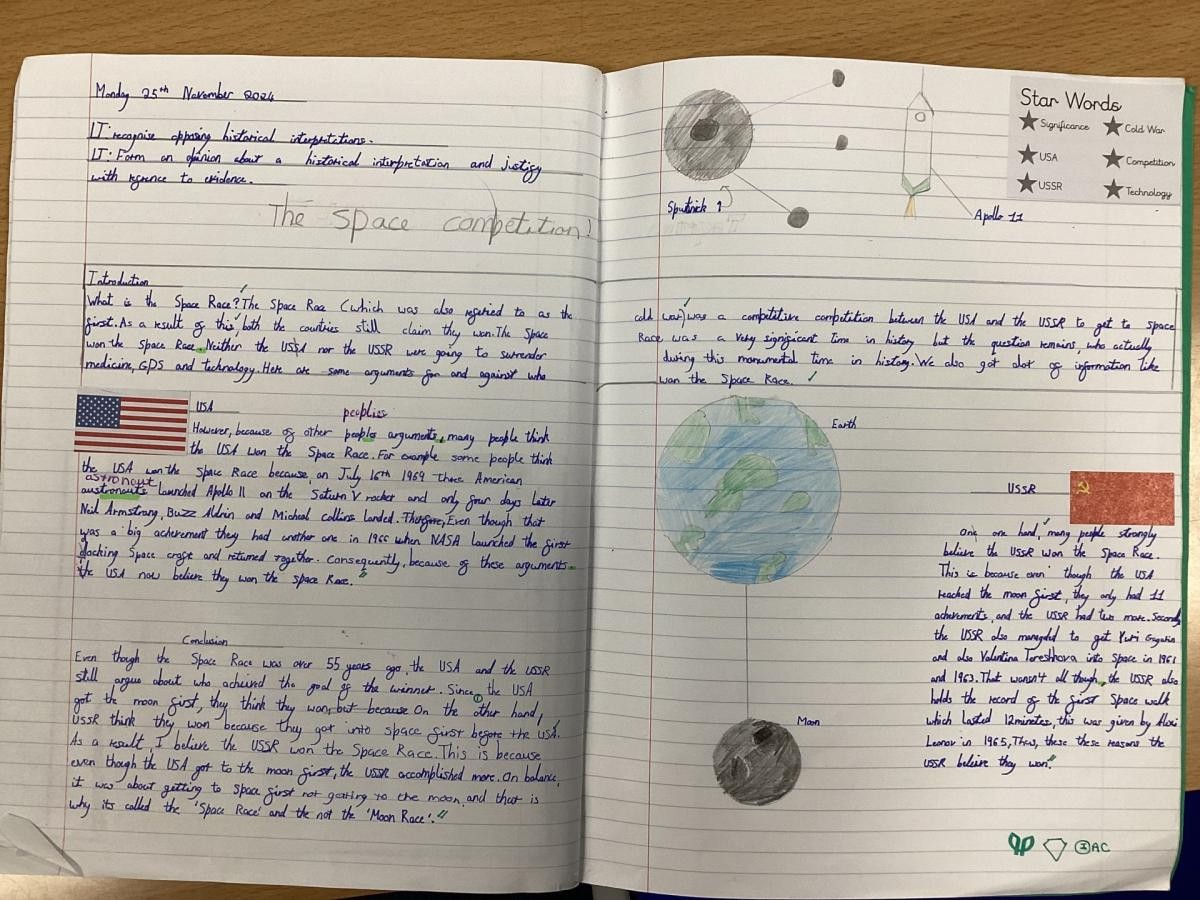 Monday 25th November 2024
LT: recognise opposing historical interpretations.
LT: Form an opinion about a historical interpretation and justify
with refrence to evidence.
The Space competition!
Sputnick 1
Apollo 11
Star Words
Significance
Cold War
USA
Competition
USSR
Technology
Introduction
What is the Space Race? The Space Race (which was also refered to as the
cold war) was a competitive competition between the USA and the USSR to get to space
first. As a result of this, both the countries still claim they won. The Space
Race was a very significant time in history but the question remains, who actually
won the Space Race. Neither the USSA nor the USSR were going to surrender
during this monumental time in history. We also got alot of information like
medicine, GPS and technology. Here are some arguments for and against who
won the Space Race.
USA
peoples
However, because of other peoples arguments, many people think
the USA won the Space Race. For example some people think
the USA won the Space Race because, on July 16th 1969 three American
astronaut
austronauts launched Apollo 11 on the Saturn V rocket and only four days later
Neil Armstrong, Buzz Aldrin and Micheal collins landed. Therfore, Even though that
was a big achievement they had another one in 1966 when NASA launched the first
docking Space craft and returned together. Consequently, because of these arguments
the USA now believe they won the space Race.
Earth
Moon
USSR
On one hand, many people strongly
believe the USSR won the Space Race.
This is because even though the USA
reached the moon first, they only had 11
achievements, and the USSR had two more. Secondly
the USSR also managded to get Yuri Gagarin
and also Valentina Tereshkova into Space in 1961
and 1963. That wansn't all though, the USSR also
holds the record of the first Space walk
which lasted 12minutes, this was given by Alexi
Leonov in 1965, Thus, these these reasons the
USSR believe they won.
Conclusion
Even though the Space Race was over 55 years ago, the USA and the USSR
still argue about who achieved the goal of the winner. Since the USA
got the moon first, they think they won, but because On the other hand,
USSR think they won because they got into space first before the USA.
As a result, I believe the USSR won the Space Race. This is because
even though the USA got to the moon first, the USSR accomplished more. On balance,
it was about getting to space first not getting to the moon, and that is
why its called the 'Space Race' and the not the 'Moon Race'.
AC